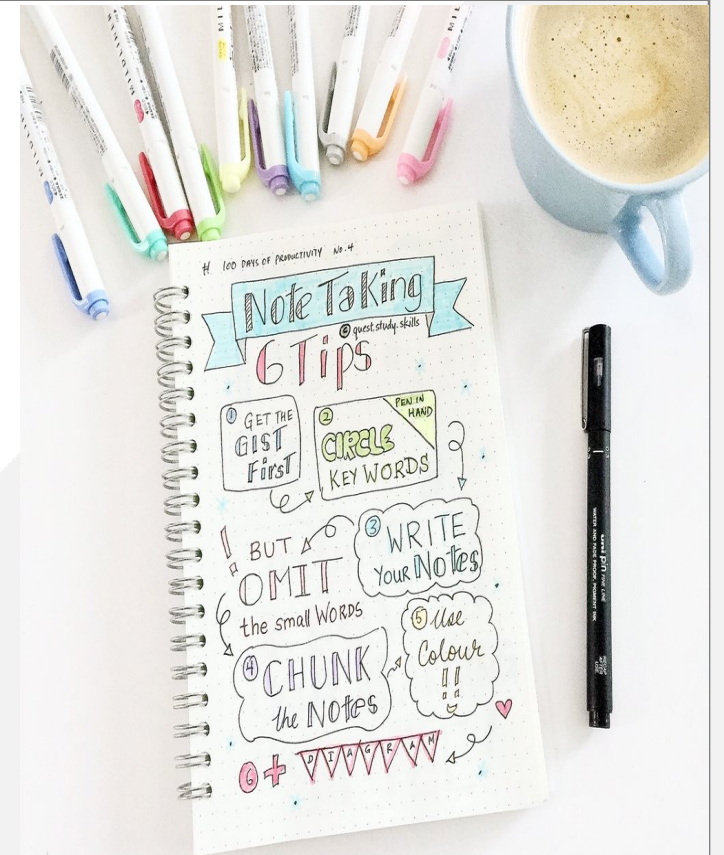 100 DAYS OF PRODUCTIVITY No.4
Note Taking
© quest.study.skills
6 Tips
1 GET THE
GIST
First
2
PEN IN
HAND
CIRCLE
KEY WORDS
3 WRITE
your Notes
! BUT
OMIT
the small WORDS
4 CHUNK
the Notes
5 Use
Colour
!!
6 + DIAGRAM
uni pin FINE LINE
WATER AND FADE PROOF, PIGMENT INK